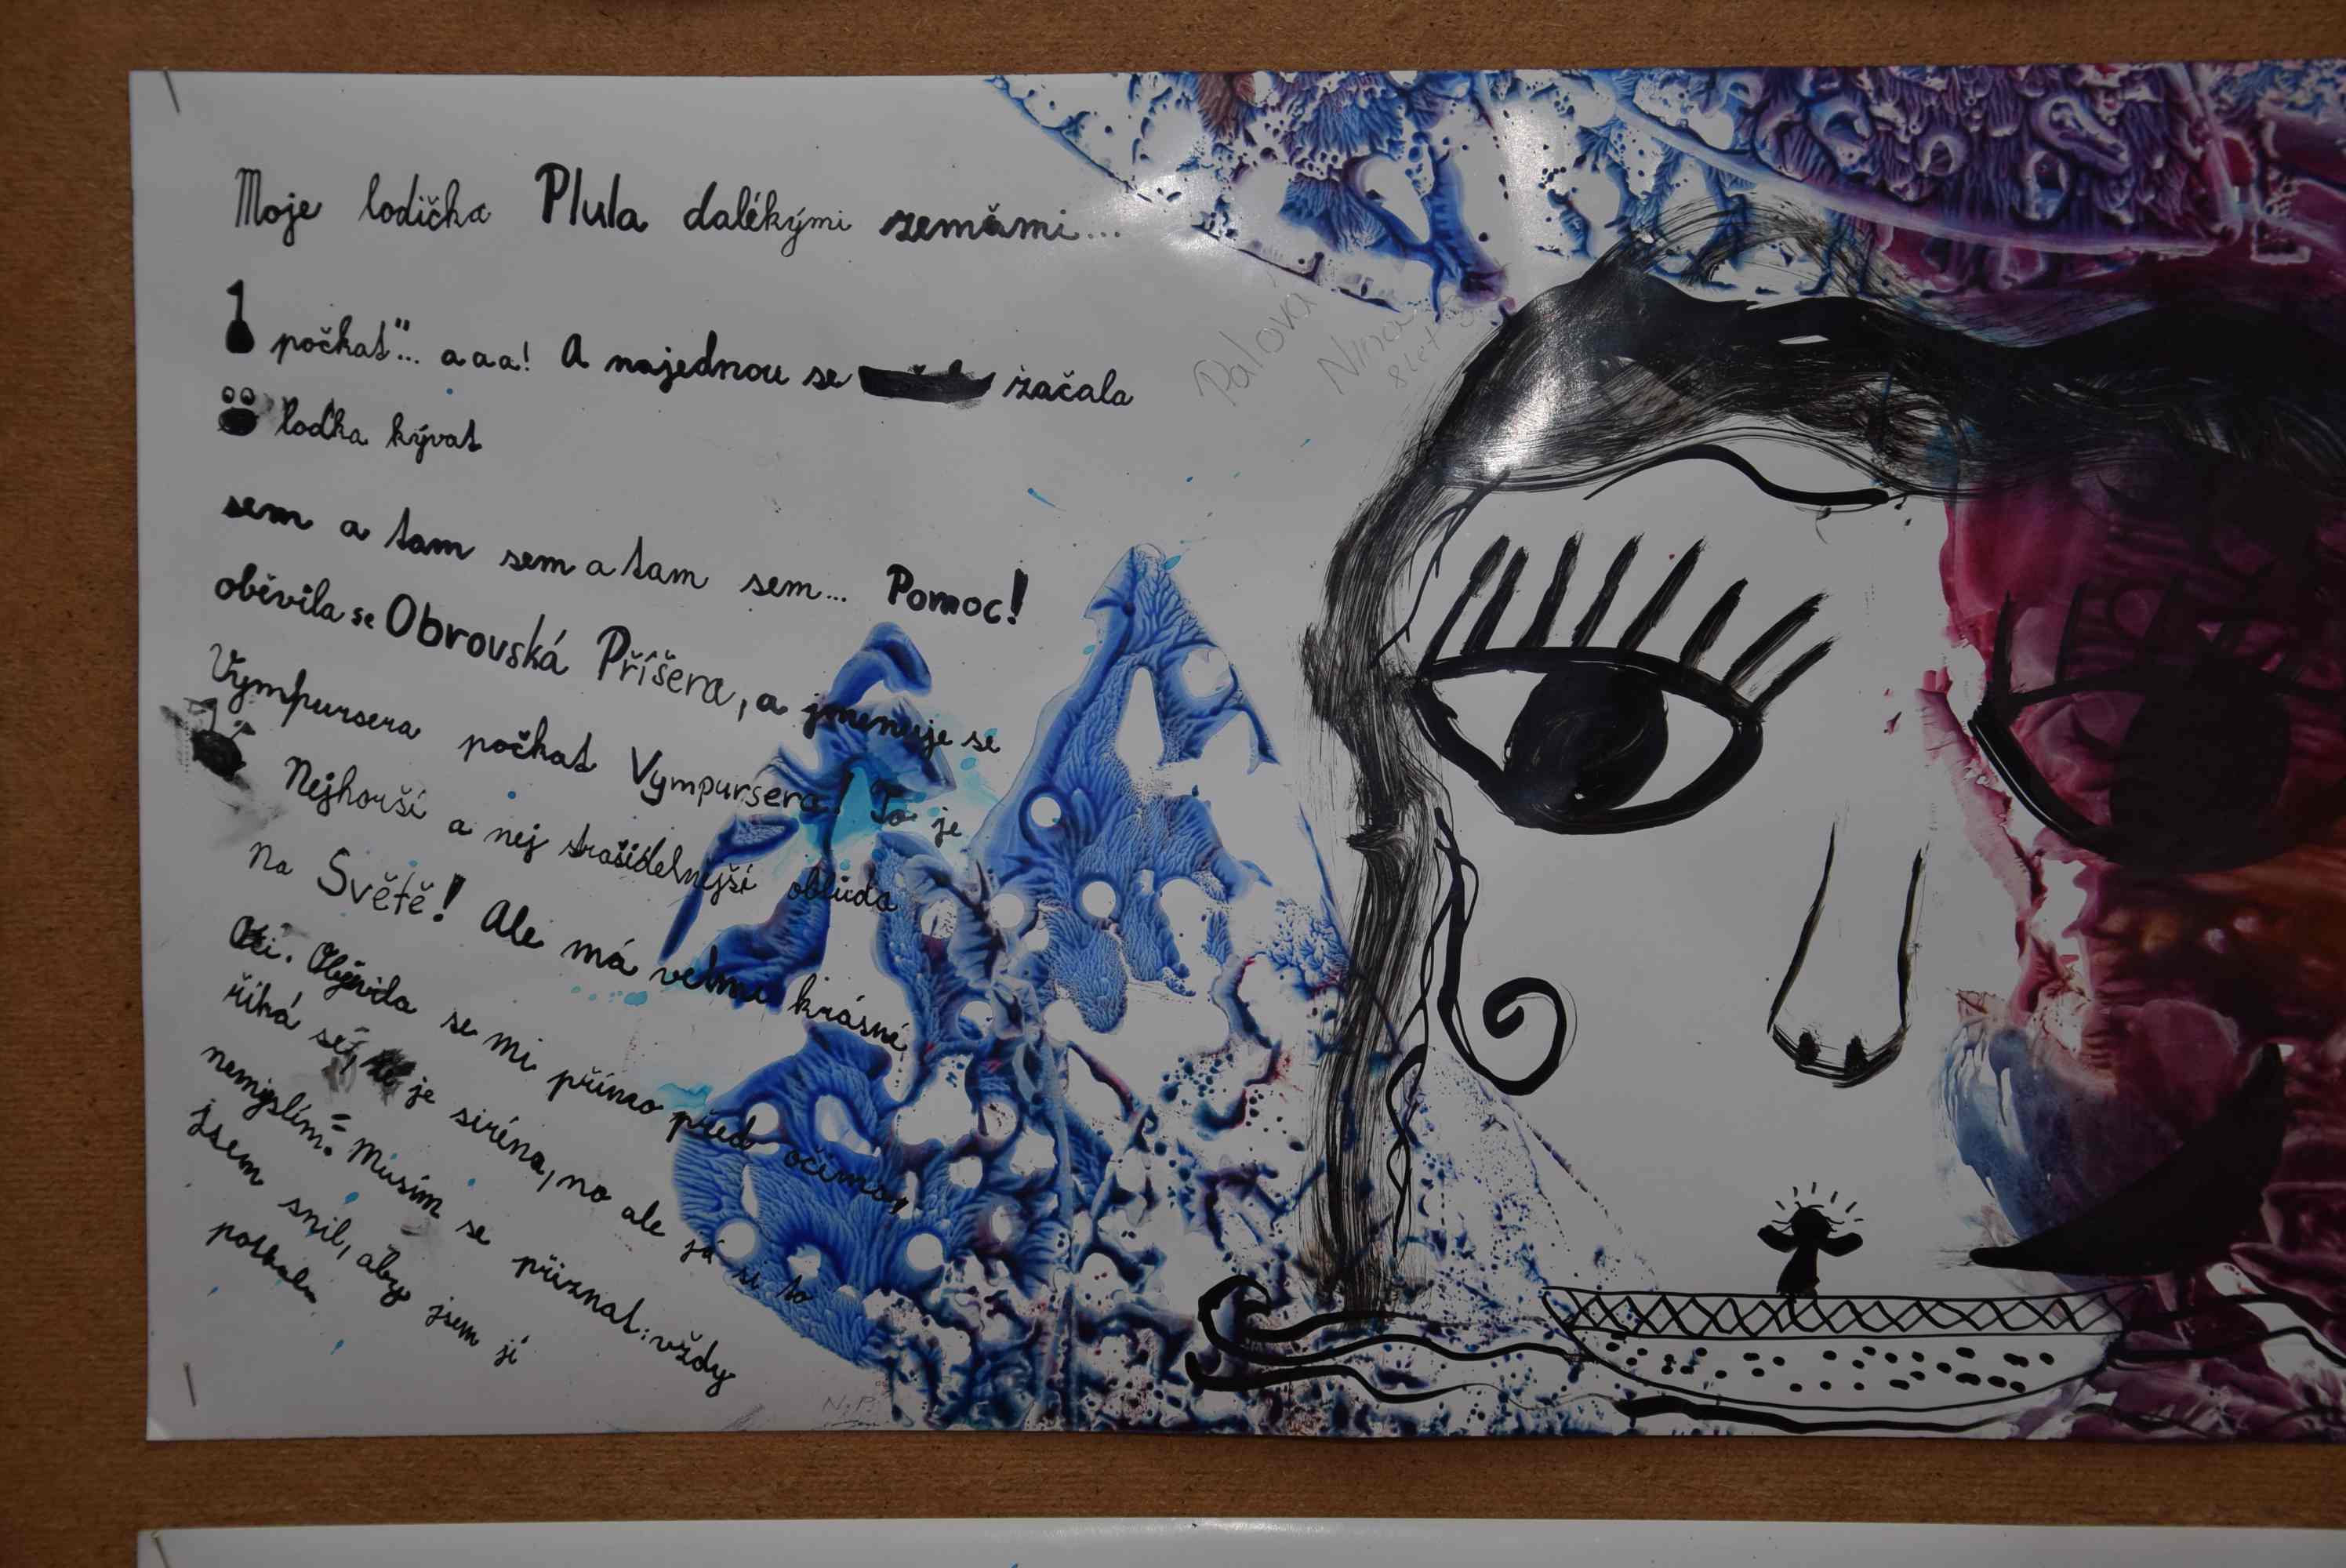 Moje lodička Plula dalékými zeměmi...
počkat"... aaa! A najednou se začala
loďka kývat
sem a tam sem a tam sem... Pomoc!
oběvila se Obrovská Příšera, a jmenuje se
Vympursera počkat Vympursera! To je
Nejhorší a nej strašidelnější obluda
na Světě! Ale má velmi krásné
Oči. Objevila se mi přímo před očima,
říká se, je siréna, no ale já si to
nemyslím. Musím se přiznat: vždy
jsem snil, aby jsem ji
potkal
Palová
Nina
8 let
N.P.